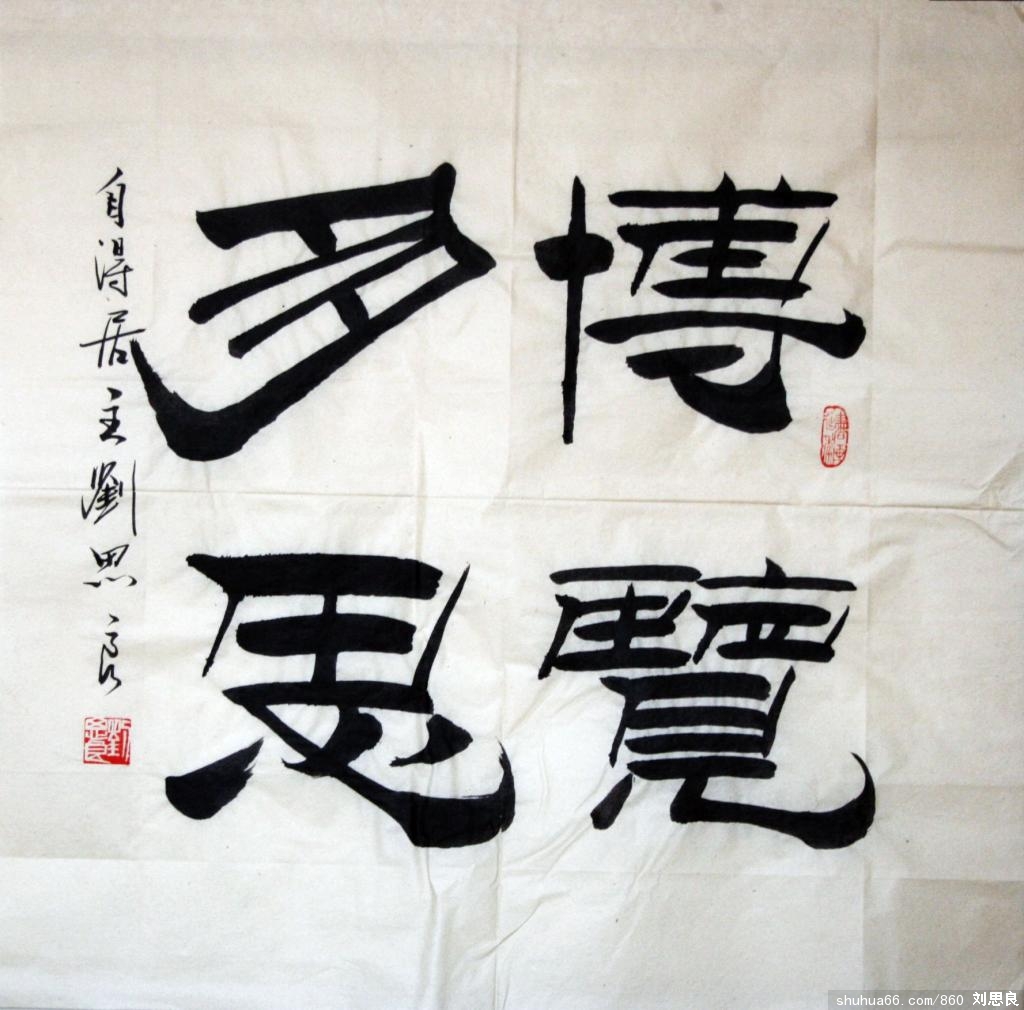 博覽
多思
自得居主劉思良
劉思良
shuhua66.com/860 刘思良